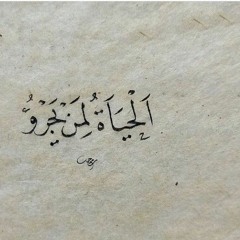 اَلْحَيَاةُ لِمَنْ يَجْرُؤُ